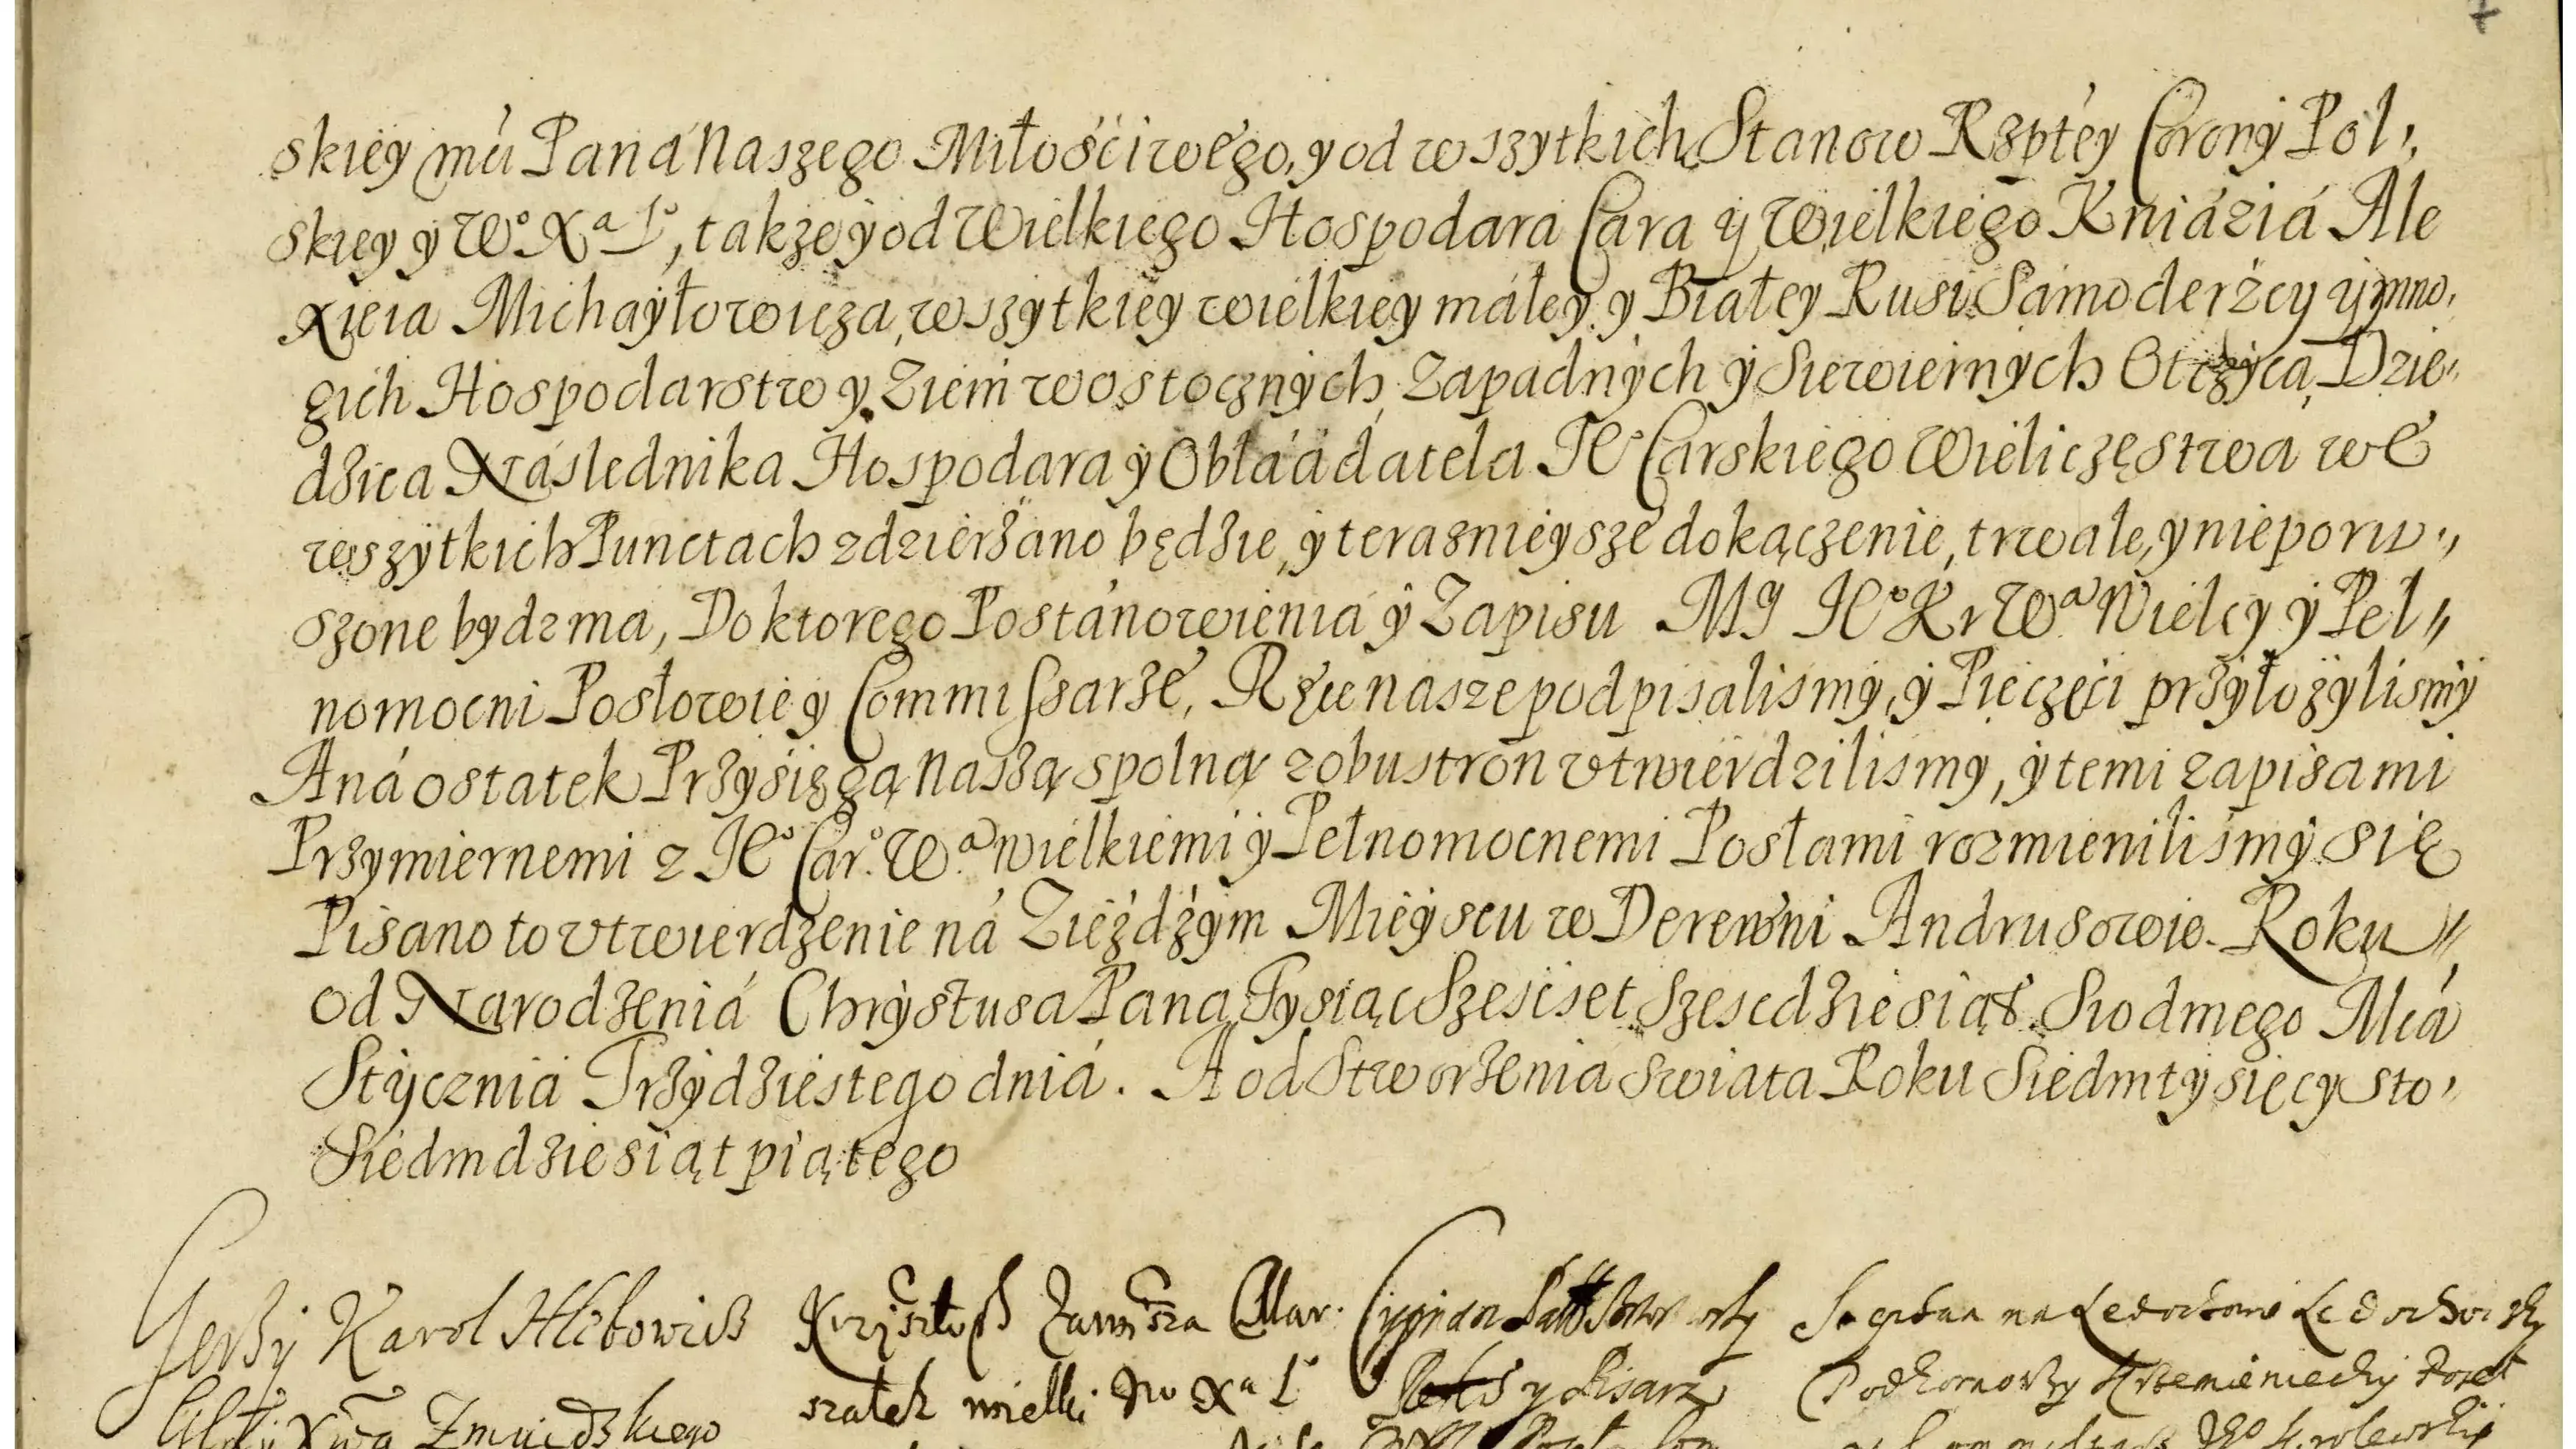 skiey mú Paná Naszego Miłościwego, y od wszytkich Stanow Rzptey Corony Pol,
skiey y Wº Xª Lº, także y od Wielkiego Hospodara Cara y Wielkiego Kniáziá Ale
xieia Michayłowicza, wszytkiey wielkiey máłey y Białey Rusi Sámoderżcy y mno,
gich Hospodarstw y Ziem wostocznych, Zapadnych y Siewiernych Otczyca, Dzie,
dzica Následnika Hospodara y Obłáádatela Jº Carskiego Wieliczęstwa we
wszytkich Punctach zdzierżano będzie, y teraznieysze dokączenie, trwale, y nieporu,,
szone bydz ma, Do ktorego Postánowieniá y Zapisu MY Jº Kr Wª Wielcy y Peł,,
nomocni Posłowie y Commissarze, Ręce nasze podpisalismy, y Pieczęci przyłożylismy
A ná ostatek Przysięgą Naszą spolną z obu stron vtwierdzilismy, y temi zapisami
Przymiernemi z Jº Carº. Wª wielkiemi y Pełnomocnemi Posłami rozmienilismy się
Pisano to vtwierdzenie ná Zieździym Mieyscu w Derewni Andrusowie. Roku,,
od Národzeniá Chrystusa Pana Tysiąc Szescset Szescdziesiąt Siodmego Mcá
Stycznia Trzydziestego dniá. A od Stworzenia Swiata Roku Siedmtysięcy Sto,
Siedmdziesiąt piątego
Jerzy Karol Hlebowicz Krzysztoph Zawisza Mar. Cyprian Brzostowsky Stephan na Ledochowie Ledochowsky
szałek wielki Wº Xª Lº y Pisarz Podkomorzy Krzemieniecky Poseł
Xwa Zmuidzkiego